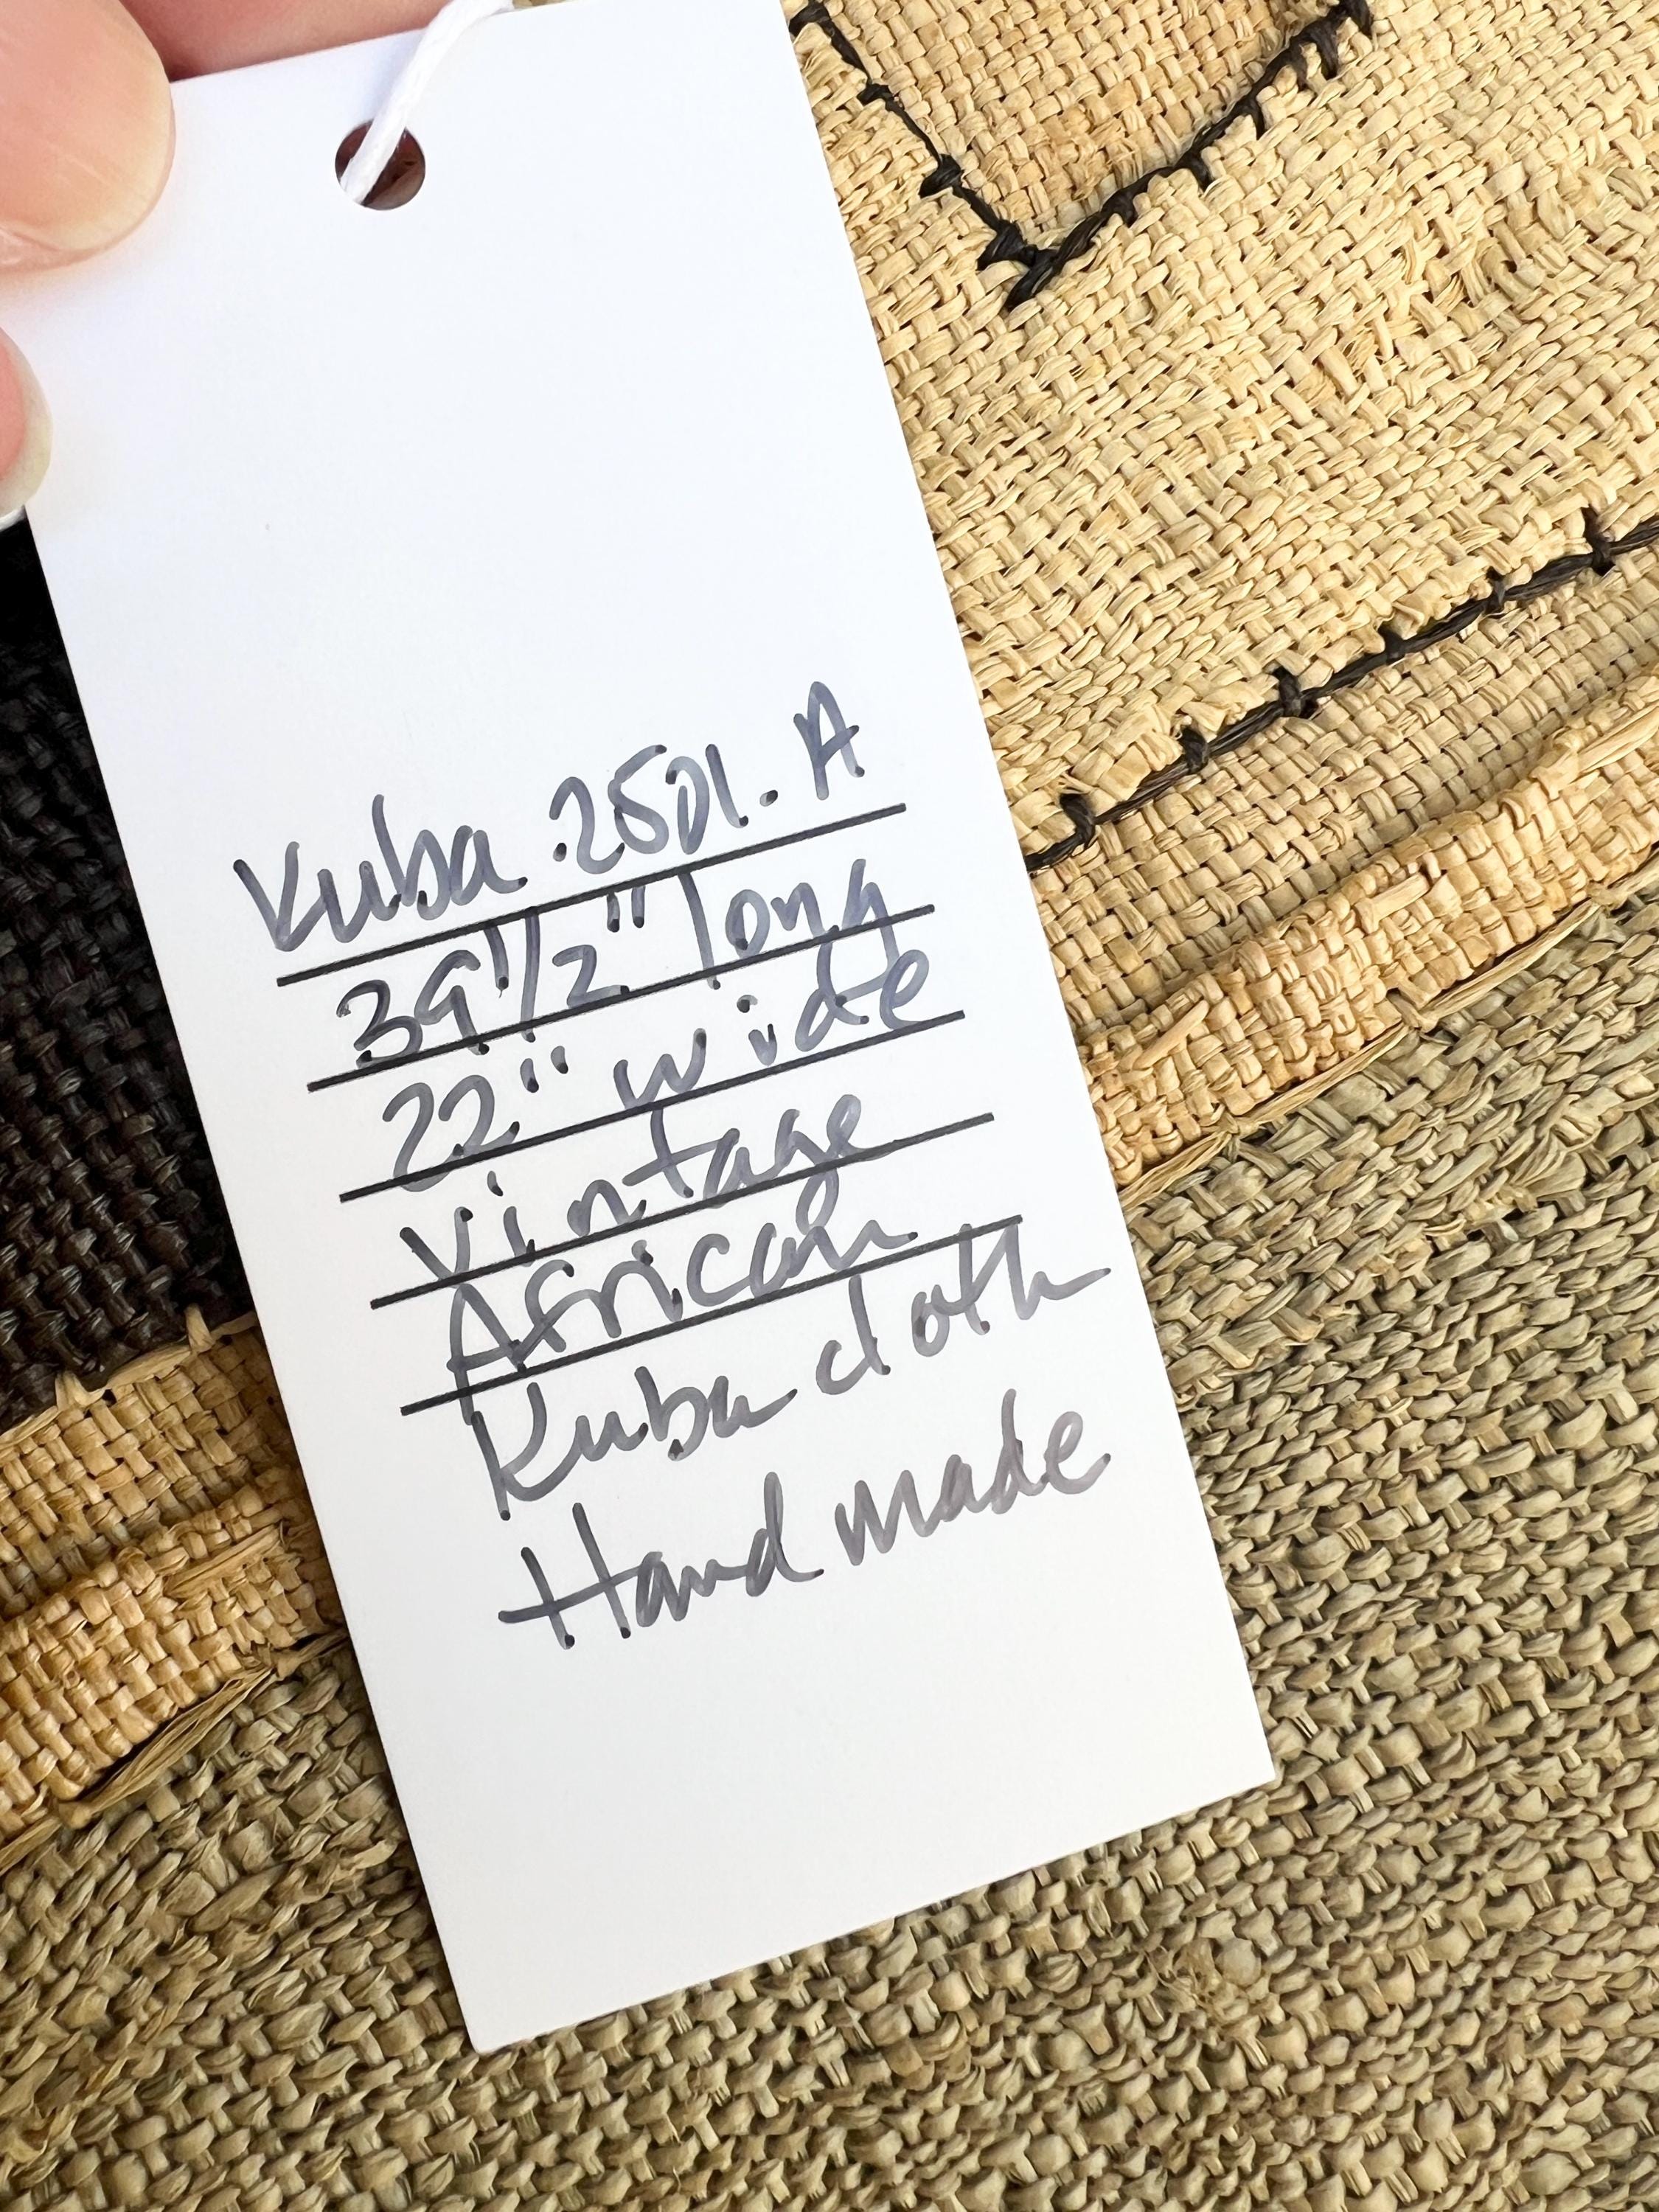 Kuba .2501. A
39 1/2" long
22" wide
Vintage
African
Kuba cloth
Hand made